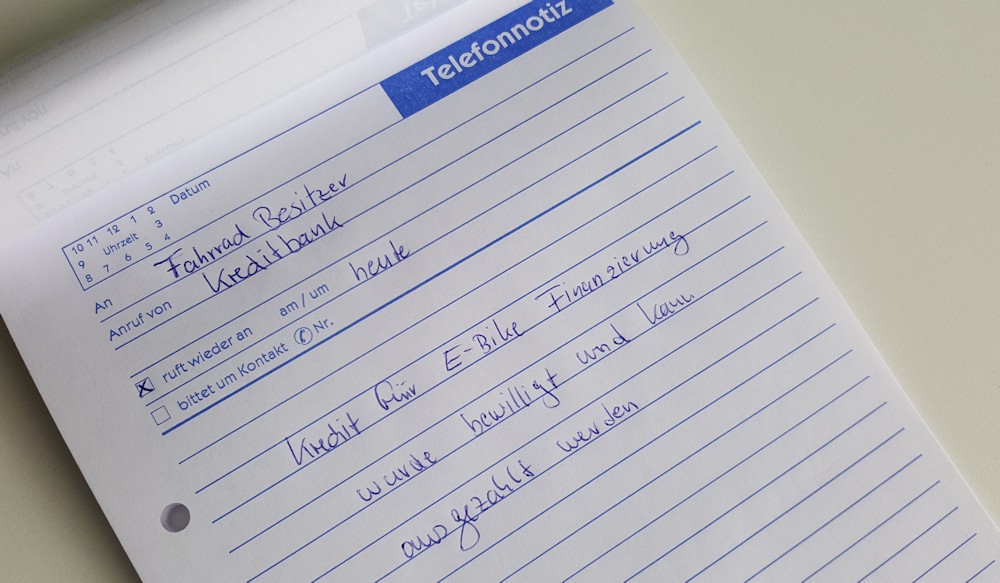 Telefonnotiz
Datum
10 11 12 1 2
9 Uhrzeit 3
8 7 6 5 4
An Fahrrad Besitzer
Anruf von Kreditbank
x ruft wieder an am / um heute
bittet um Kontakt Nr.
Kredit für E-Bike Finanzierung
wurde bewilligt und kann
ausgezahlt werden